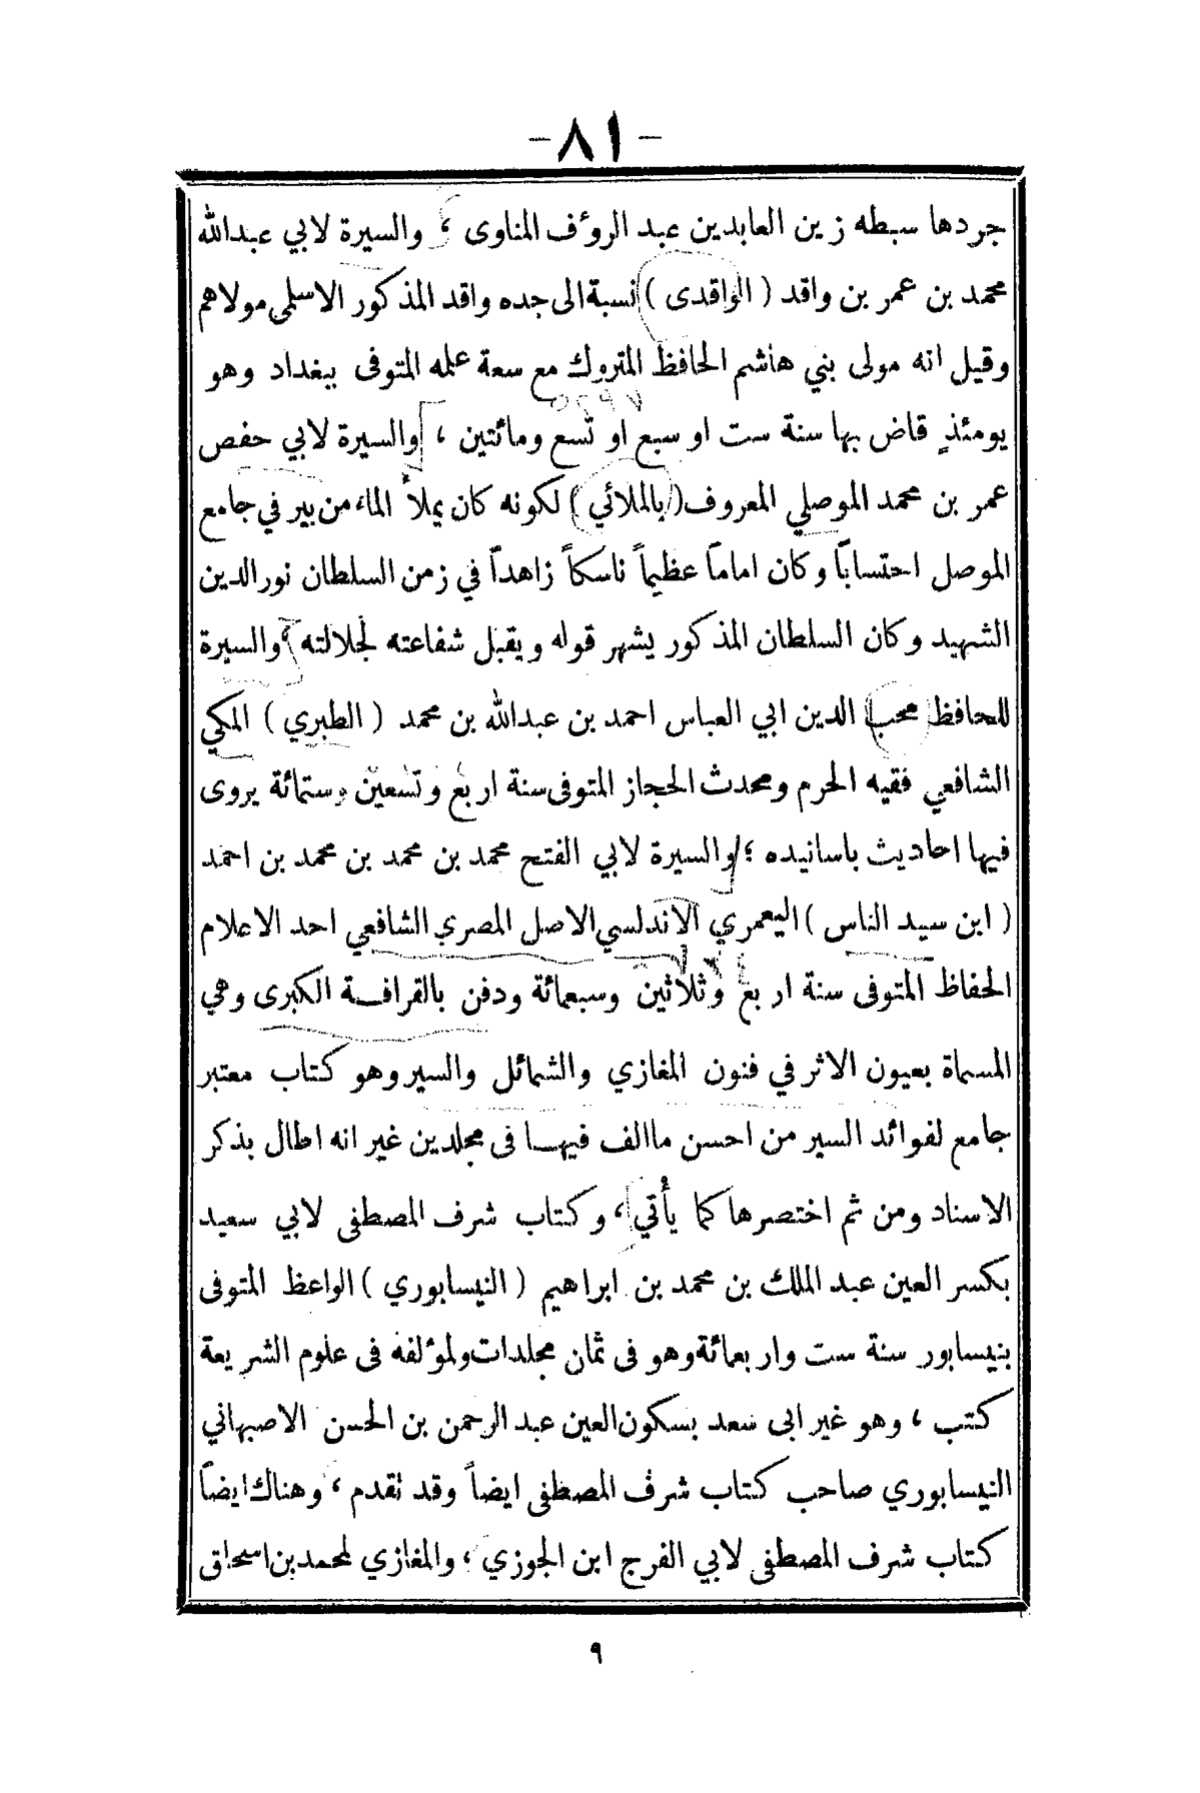 - ٨١ -
جردها سبطه زين العابدين عبد الروءف المناوى ، والسيرة لابي عبدالله
محمد بن عمر بن واقد ( الواقدى ) نسبة الى جده واقد المذكور الاسلمى مولاهم
وقيل انه مولى بني هاشم الحافظ المتروك مع سعة علمه المتوفى ببغداد وهو
يومئذٍ قاض بها سنة ست او سبع او تسع ومائتين ، والسيرة لابي حفص
عمر بن محمد الموصلي المعروف ( بالملائي ) لكونه كان يملأ الماء من بير في جامع
الموصل احتساباً وكان اماماً عظيماً ناسكاً زاهداً في زمن السلطان نور الدين
الشهيد وكان السلطان المذكور يشهر قوله ويقبل شفاعته لجلالته ، والسيرة
للحافظ محب الدين ابي العباس احمد بن عبدالله بن محمد ( الطبري ) المكي
الشافعي فقيه الحرم ومحدث الحجاز المتوفى سنة اربع وتسعين وستمائة يروى
فيها احاديث باسانيده ؛ والسيرة لابي الفتح محمد بن محمد بن محمد بن احمد
( ابن سيد الناس ) اليعمري الاندلسي الاصل المصري الشافعي احد الاعلام
الحفاظ المتوفى سنة اربع وثلاثين وسبعمائة ودفن بالقرافة الكبرى وهي
المسماة بعيون الاثر في فنون المغازي والشمائل والسير وهو كتاب معتبر
جامع لفوائد السير من احسن ما الف فيها فى مجلدين غير انه اطال بذكر
الاسناد ومن ثم اختصرها كما يأتي ، وكتاب شرف المصطفى لابي سعيد
بكسر العين عبد الملك بن محمد بن ابراهيم ( النيسابوري ) الواعظ المتوفى
بنيسابور سنة ست واربعمائة وهو فى ثمان مجلدات ولموءلفه فى علوم الشريعة
كتب ، وهو غير ابى سعد بسكون العين عبد الرحمن بن الحسن الاصبهاني
النيسابوري صاحب كتاب شرف المصطفى ايضاً وقد تقدم ، وهناك ايضاً
كتاب شرف المصطفى لابي الفرج ابن الجوزي ، والمغازي لمحمد بن اسحاق
٩